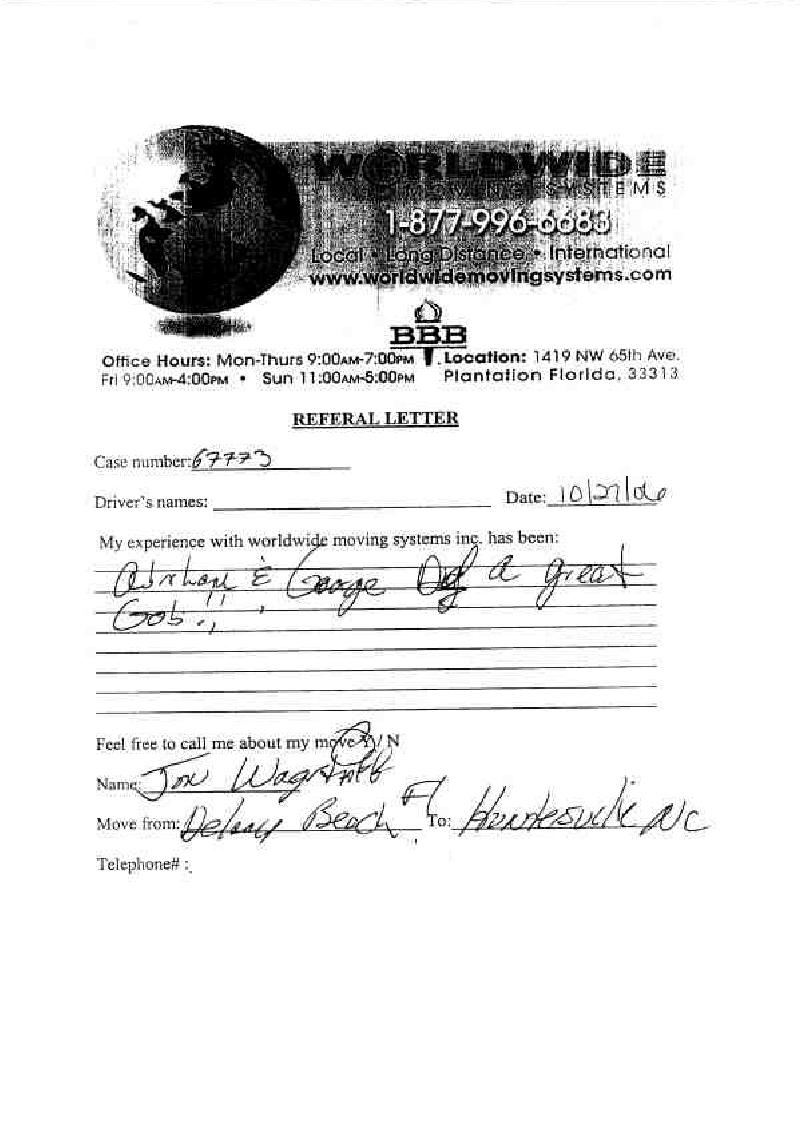 WORLDWIDE
MOVING SYSTEMS
1-877-996-6683
Local • Long Distance • International
www.worldwidemovingsystems.com
BBB
Office Hours: Mon-Thurs 9:00AM-7:00PM
Fri 9:00AM-4:00PM • Sun 11:00AM-5:00PM
Location: 1419 NW 65th Ave.
Plantation Florida, 33313
REFERAL LETTER
Case number: 67773
Driver's names:
Date: 10/27/06
My experience with worldwide moving systems inc. has been:
& George a great
Gob!!
Feel free to call me about my move Y/N
Name: Jon Wagstaff
Move from: Delray Beach Fl To: Huntersville NC
Telephone# :